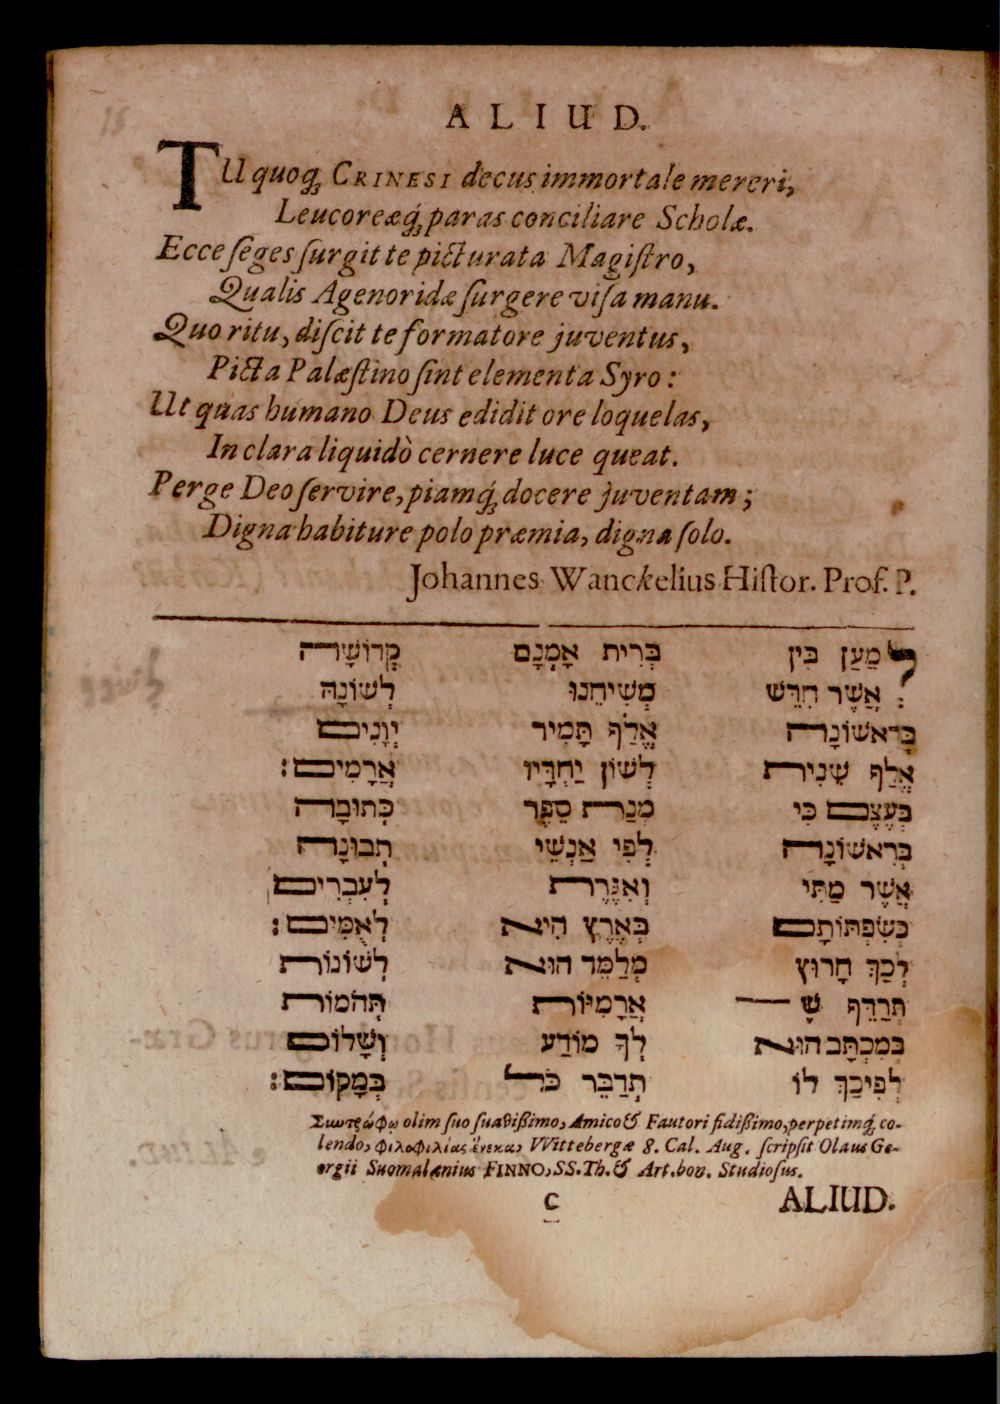 ALIUD.
TU quoq́ꝫ CRINESI decus immortale mereri,
Leucoreæq́ꝫ paras conciliare Scholæ.
Ecce ſeges ſurgit te picturata Magiſtro,
Qualis Agenoridæ ſurgere viſa manu.
Quo ritu, diſcit te formatore juventus,
Picta Palæſtino ſint elementa Syro:
Ut quas humano Deus edidit ore loquelas,
In clara liquidò cernere luce queat.
Perge Deo ſervire, piamq́ꝫ docere juventam;
Digna habiture polo præmia, digna ſolo.
Johannes Wanckelius Hiſtor. Prof. P.
לְמַעַן בִּין בְּרִית אָמְנָם קְדוֹשָׁה
אֲשֶׁר חִדֵּשׁ מְשִׁיחֵנוּ לְשׁוֹנָהּ
בָּרִאשׁוֹנָה אֱלֹף תָּמִיד יְוָנִים
אֱלַף שֵׁנִית לְשׁוֹן יַחְדָּיו אֲרָמִים:
בְּעֶצֶם כִּי מִנַּת סֵפֶר כְּתוּבָה
בְּרִאשׁוֹנָה לְפִי אַנְשֵׁי תְבוּנָה
אֲשֶׁר מַתִּי וְאִגֶּרֶת לְעִבְרִים
כְּשִׂפְתוֹתָם בְּאֶרֶץ הִיא לְאֻמִּים:
לְכַךְ חָרוּץ מְלַמֵּד הוּא לְשׁוֹנוֹת
תְּרַדֵּף שָׁ— אֲרָמִיּוֹת תְּהֹמוֹת
בְּמִכְתָּב הוּא לְךָ מוֹדַע וְשָׁלוֹם
לְפִיכַךְ לוֹ תְדַבֵּר כֹּל בְּמָקוֹם:
Συντρόφῳ olim ſuo ſuaviſſimo, Amico & Fautori fidiſſimo, perpetimq́ꝫ co-
lendo, φιλοφιλίας ἕνεκα, VVittebergæ 8. Cal. Aug. ſcripſit Olaus Ge-
orgii Suomalanius FINNO, SS. Th. & Art. bon. Studioſus.
C ALIUD.